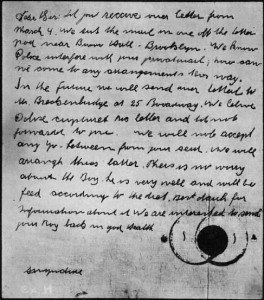 Dear Sir: Did you receive ouer letter from
March 4. we sent the mail in one off the letter
pod near Burro Hall - Brooklyn. We know
Police interfere with your privatmail; how can
we come to any arrangements this way.
In the future we will send ouer letters to
Mr. Breckenbridge at 25 Broadway. We
Police captured letter and let not
forwarded to you. We will not accept
any go-between from your seid. We will
arrangh theas latter. There is no worry
about the Boy. he is very well and will be
feed according to the diet. Best for
information about it. We are interested to send
your Boy back in gud health
singnature